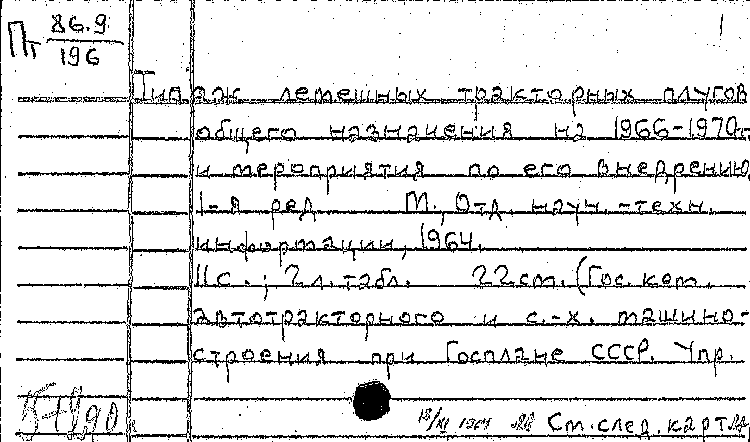 Пт 86.9
196
Типаж лемешных тракторных плугов
общего назначения на 1966-1970гг.
и мероприятия по его внедрению
1-я ред. М., Отд. науч.-техн.
информации, 1964.
11с.; 2 л. табл. 22см. (Гос. ком.
автотракторного и с.-х. машино-
строения при Госплане СССР. Упр.
См. след. карт.